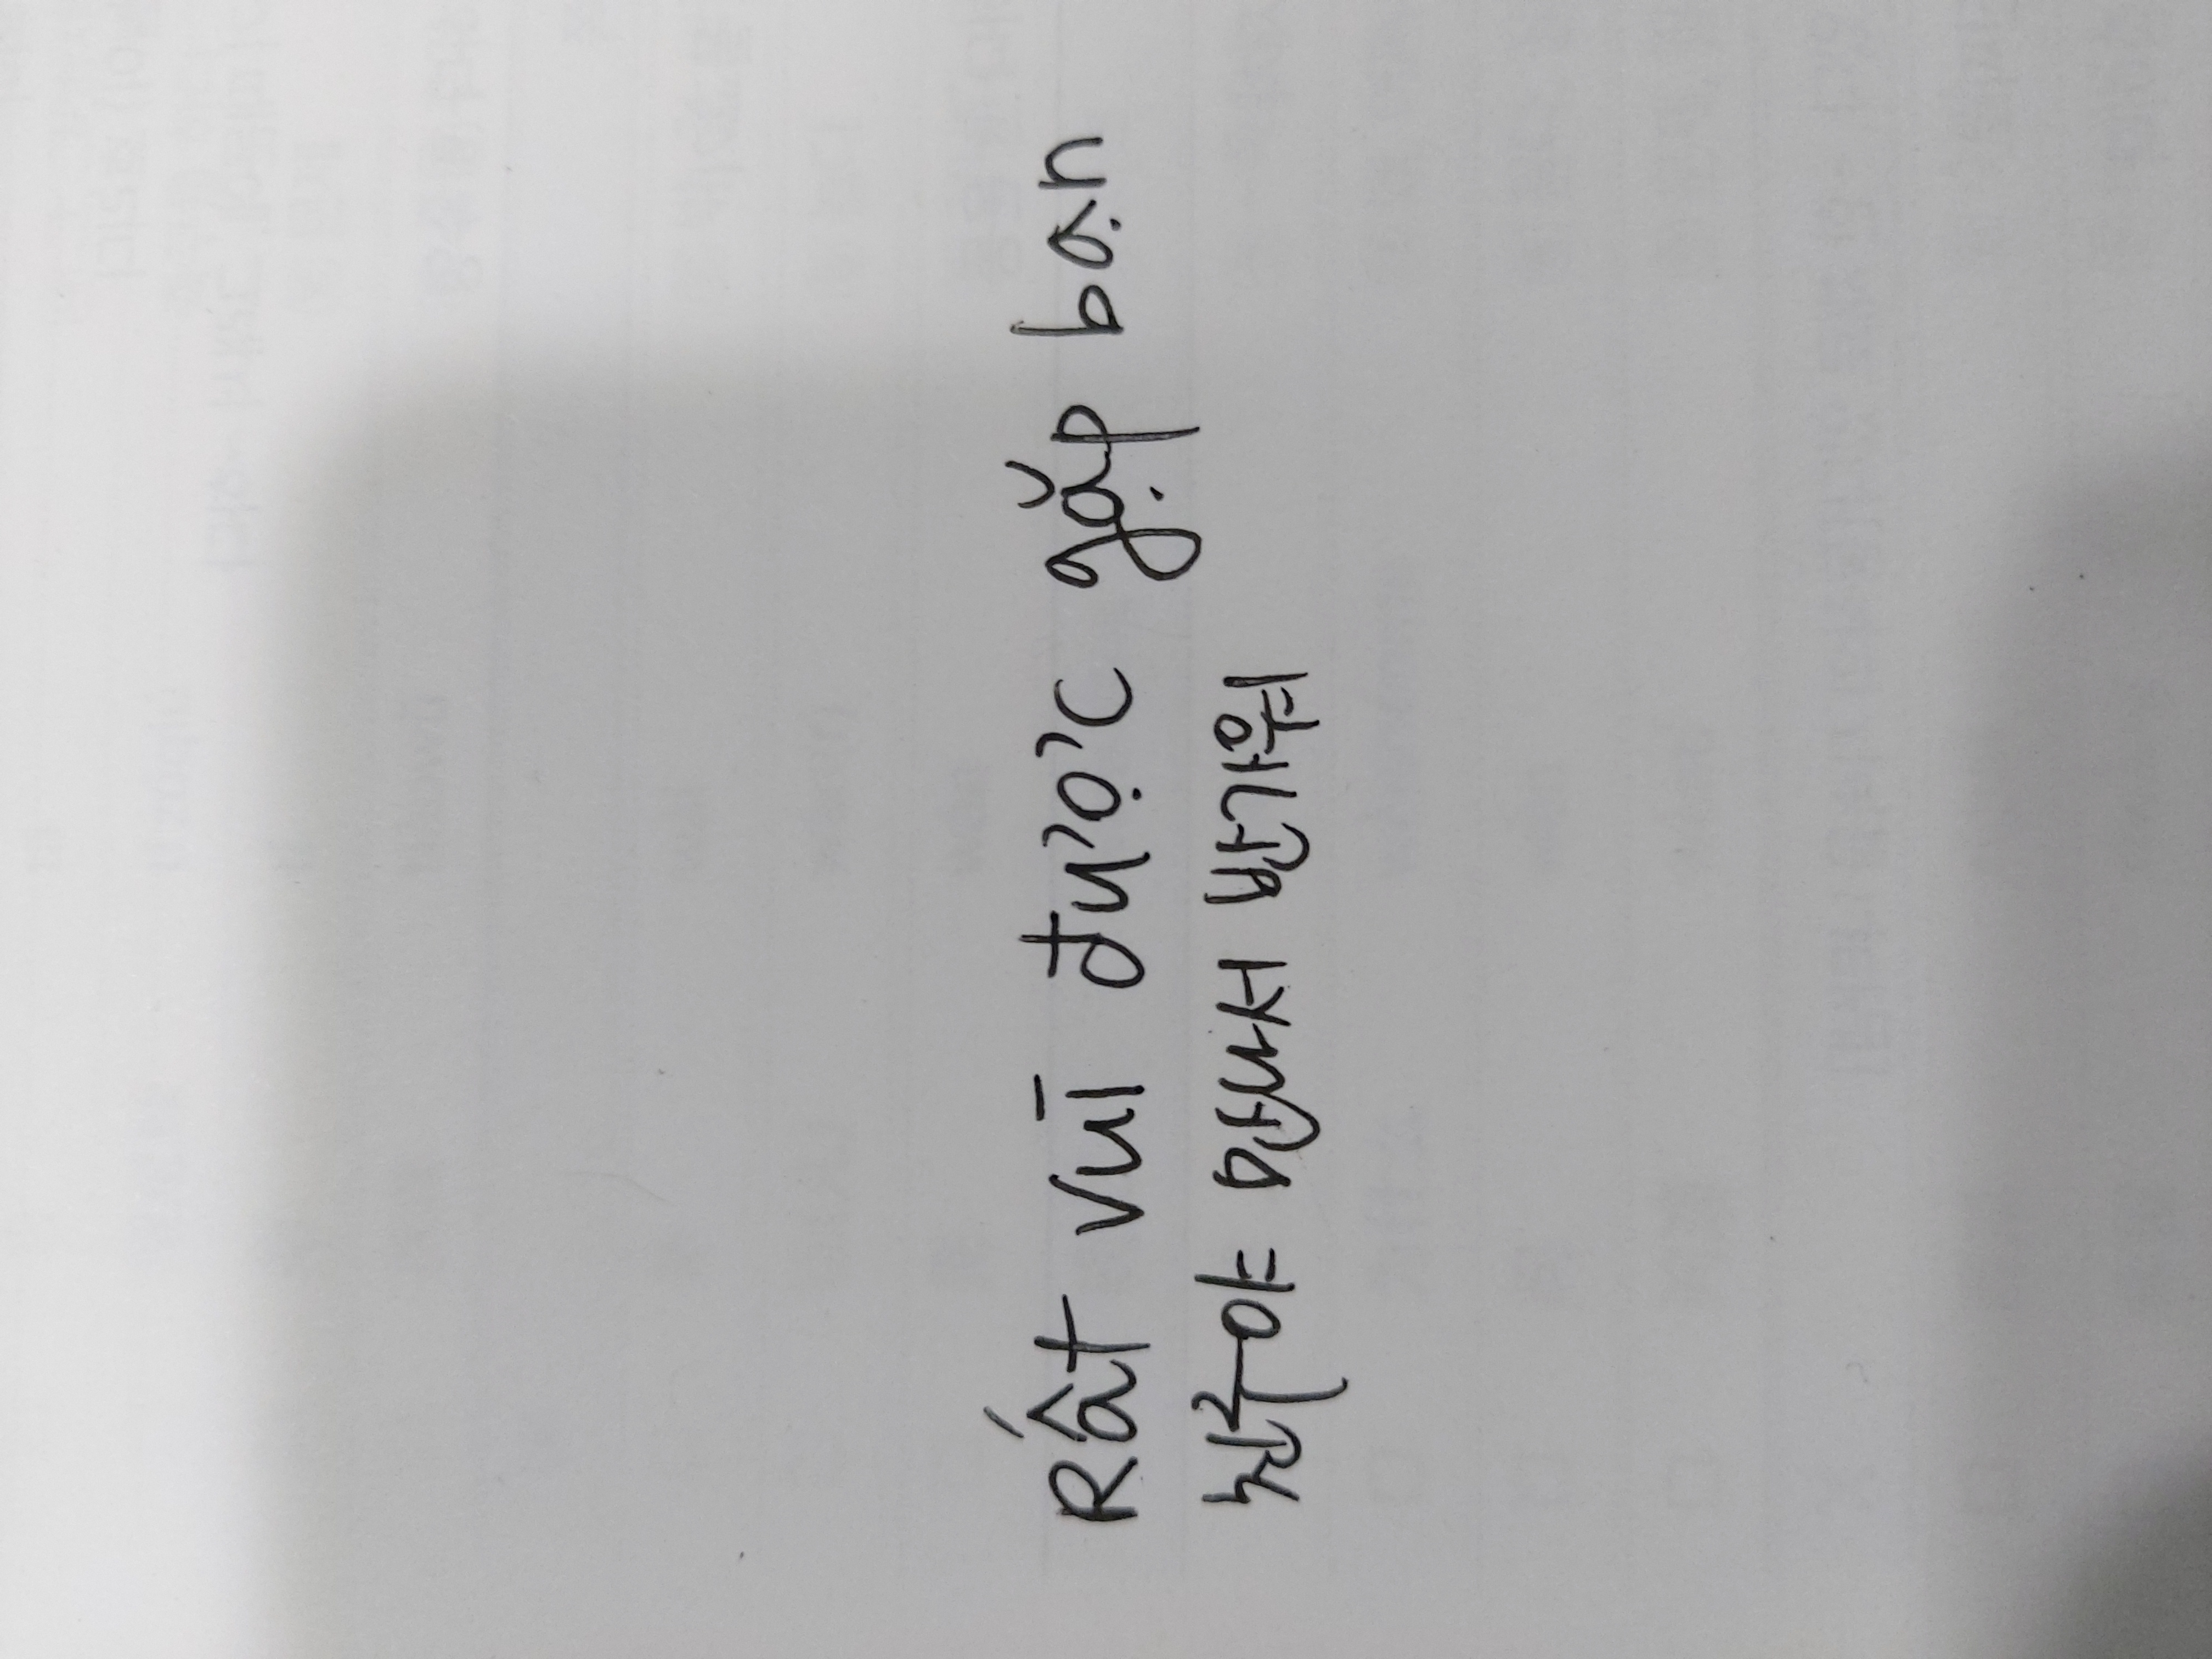 Rất vui được gặp bạn
친구야 만나서 반가워